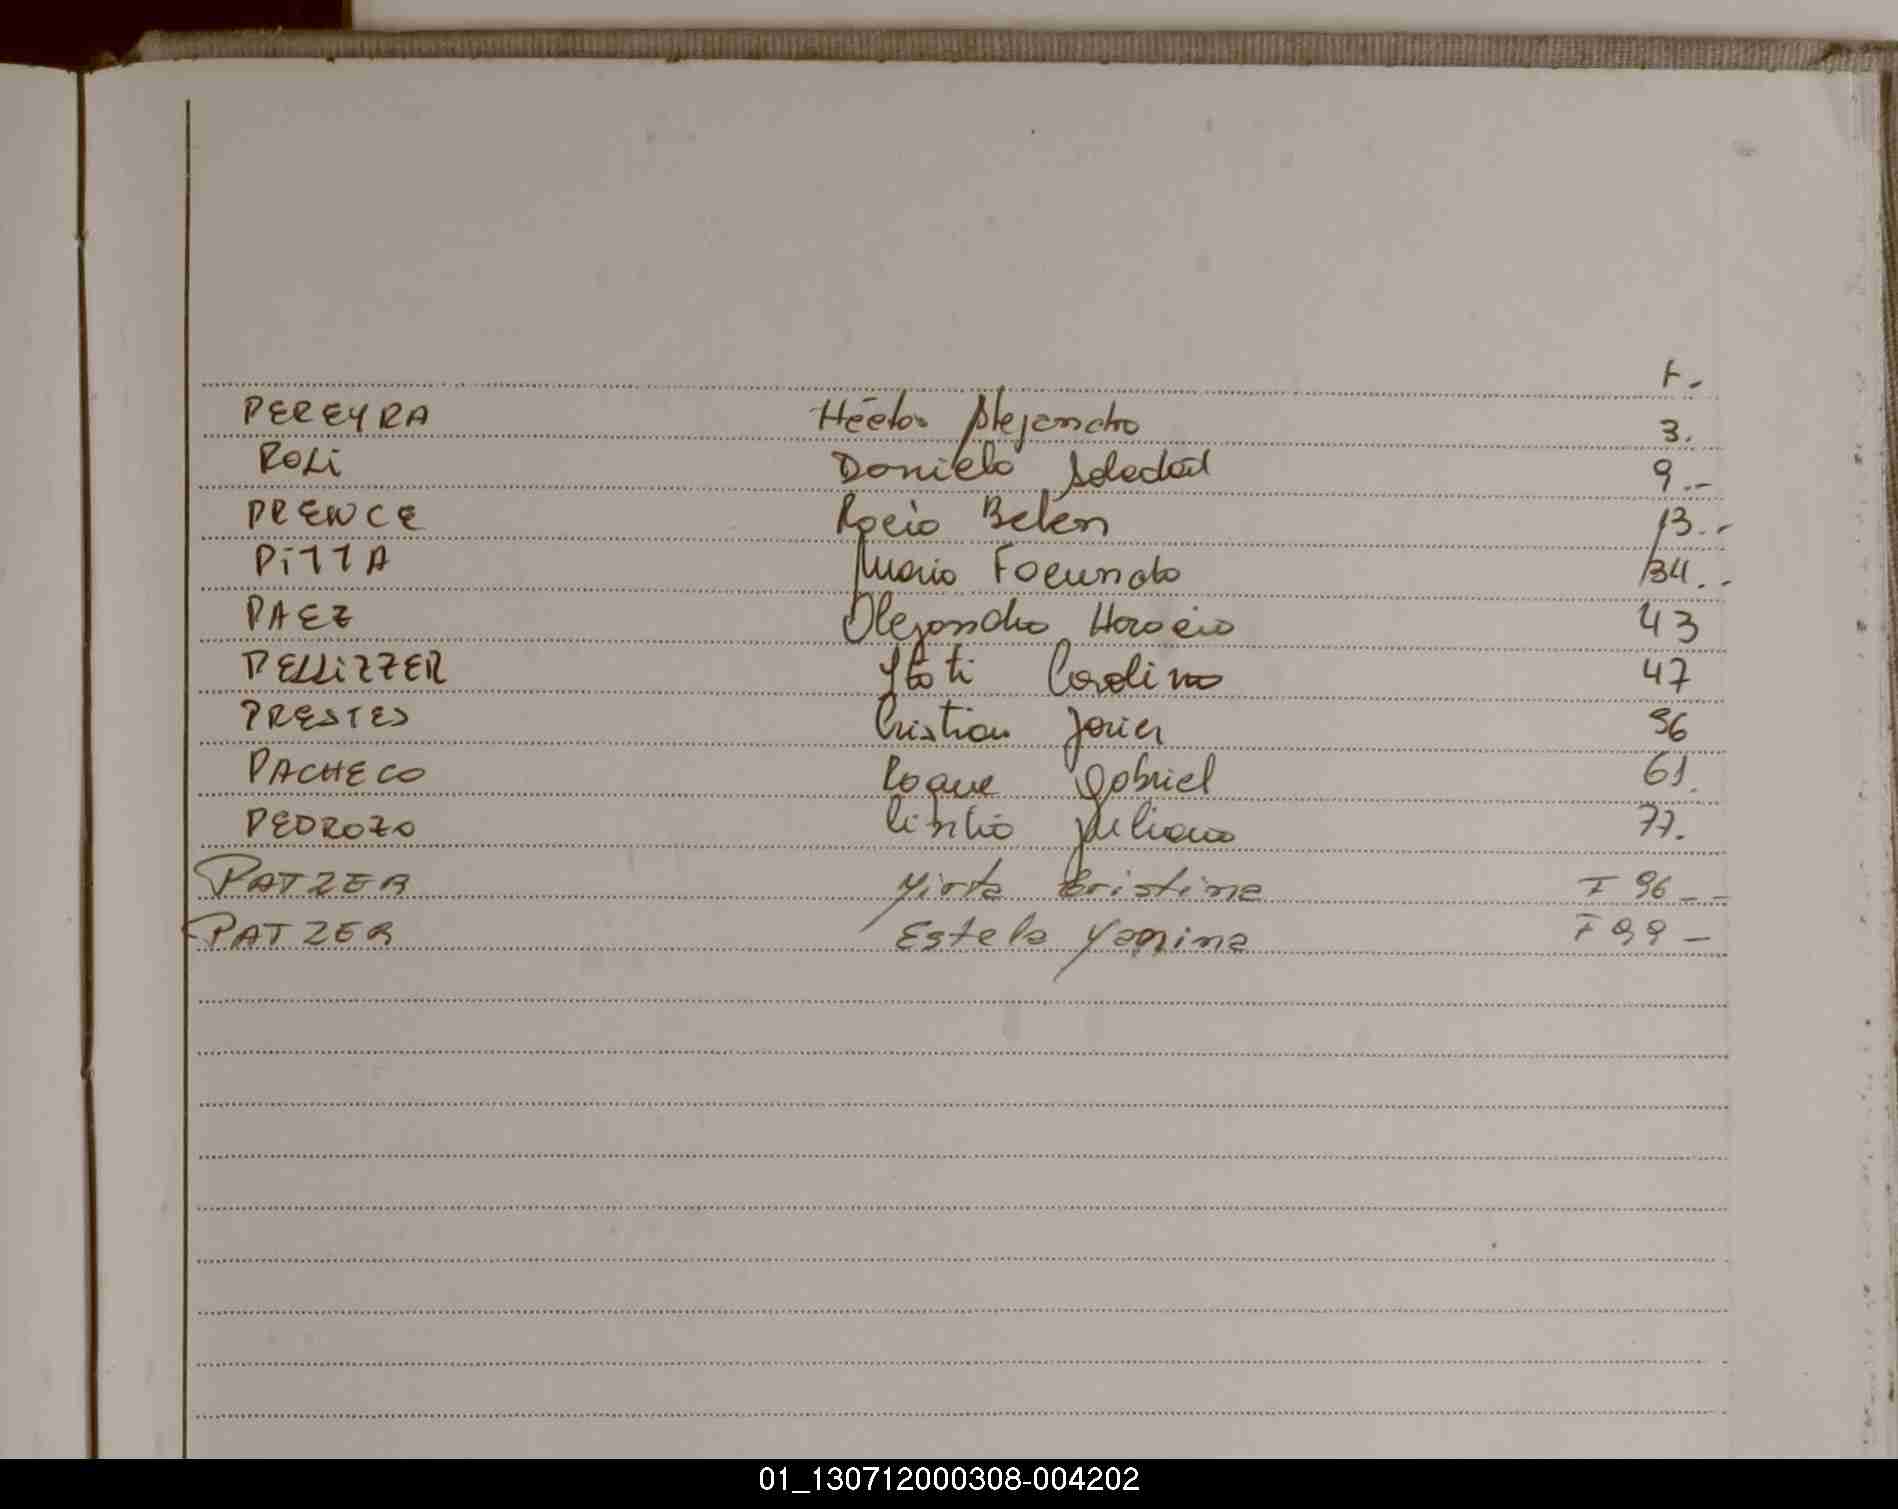 F.-
PEREYRA Héctor Alejandro 3.
ROLi Daniela Soledad 9.-
PRENCE Rocio Belen 13.-
PiTTA Mario Facundo 34.-
PAEZ Alejandro Horacio 43
PELLiZZER Itati Carolina 47
PRESTES Cristian Javier 56
PACHECO Roque Gabriel 61.
PEDROZO Juliana 77.
PATZER Mirta Cristina F 96--
PATZER Estela Yanina F 99-
01_130712000308-004202